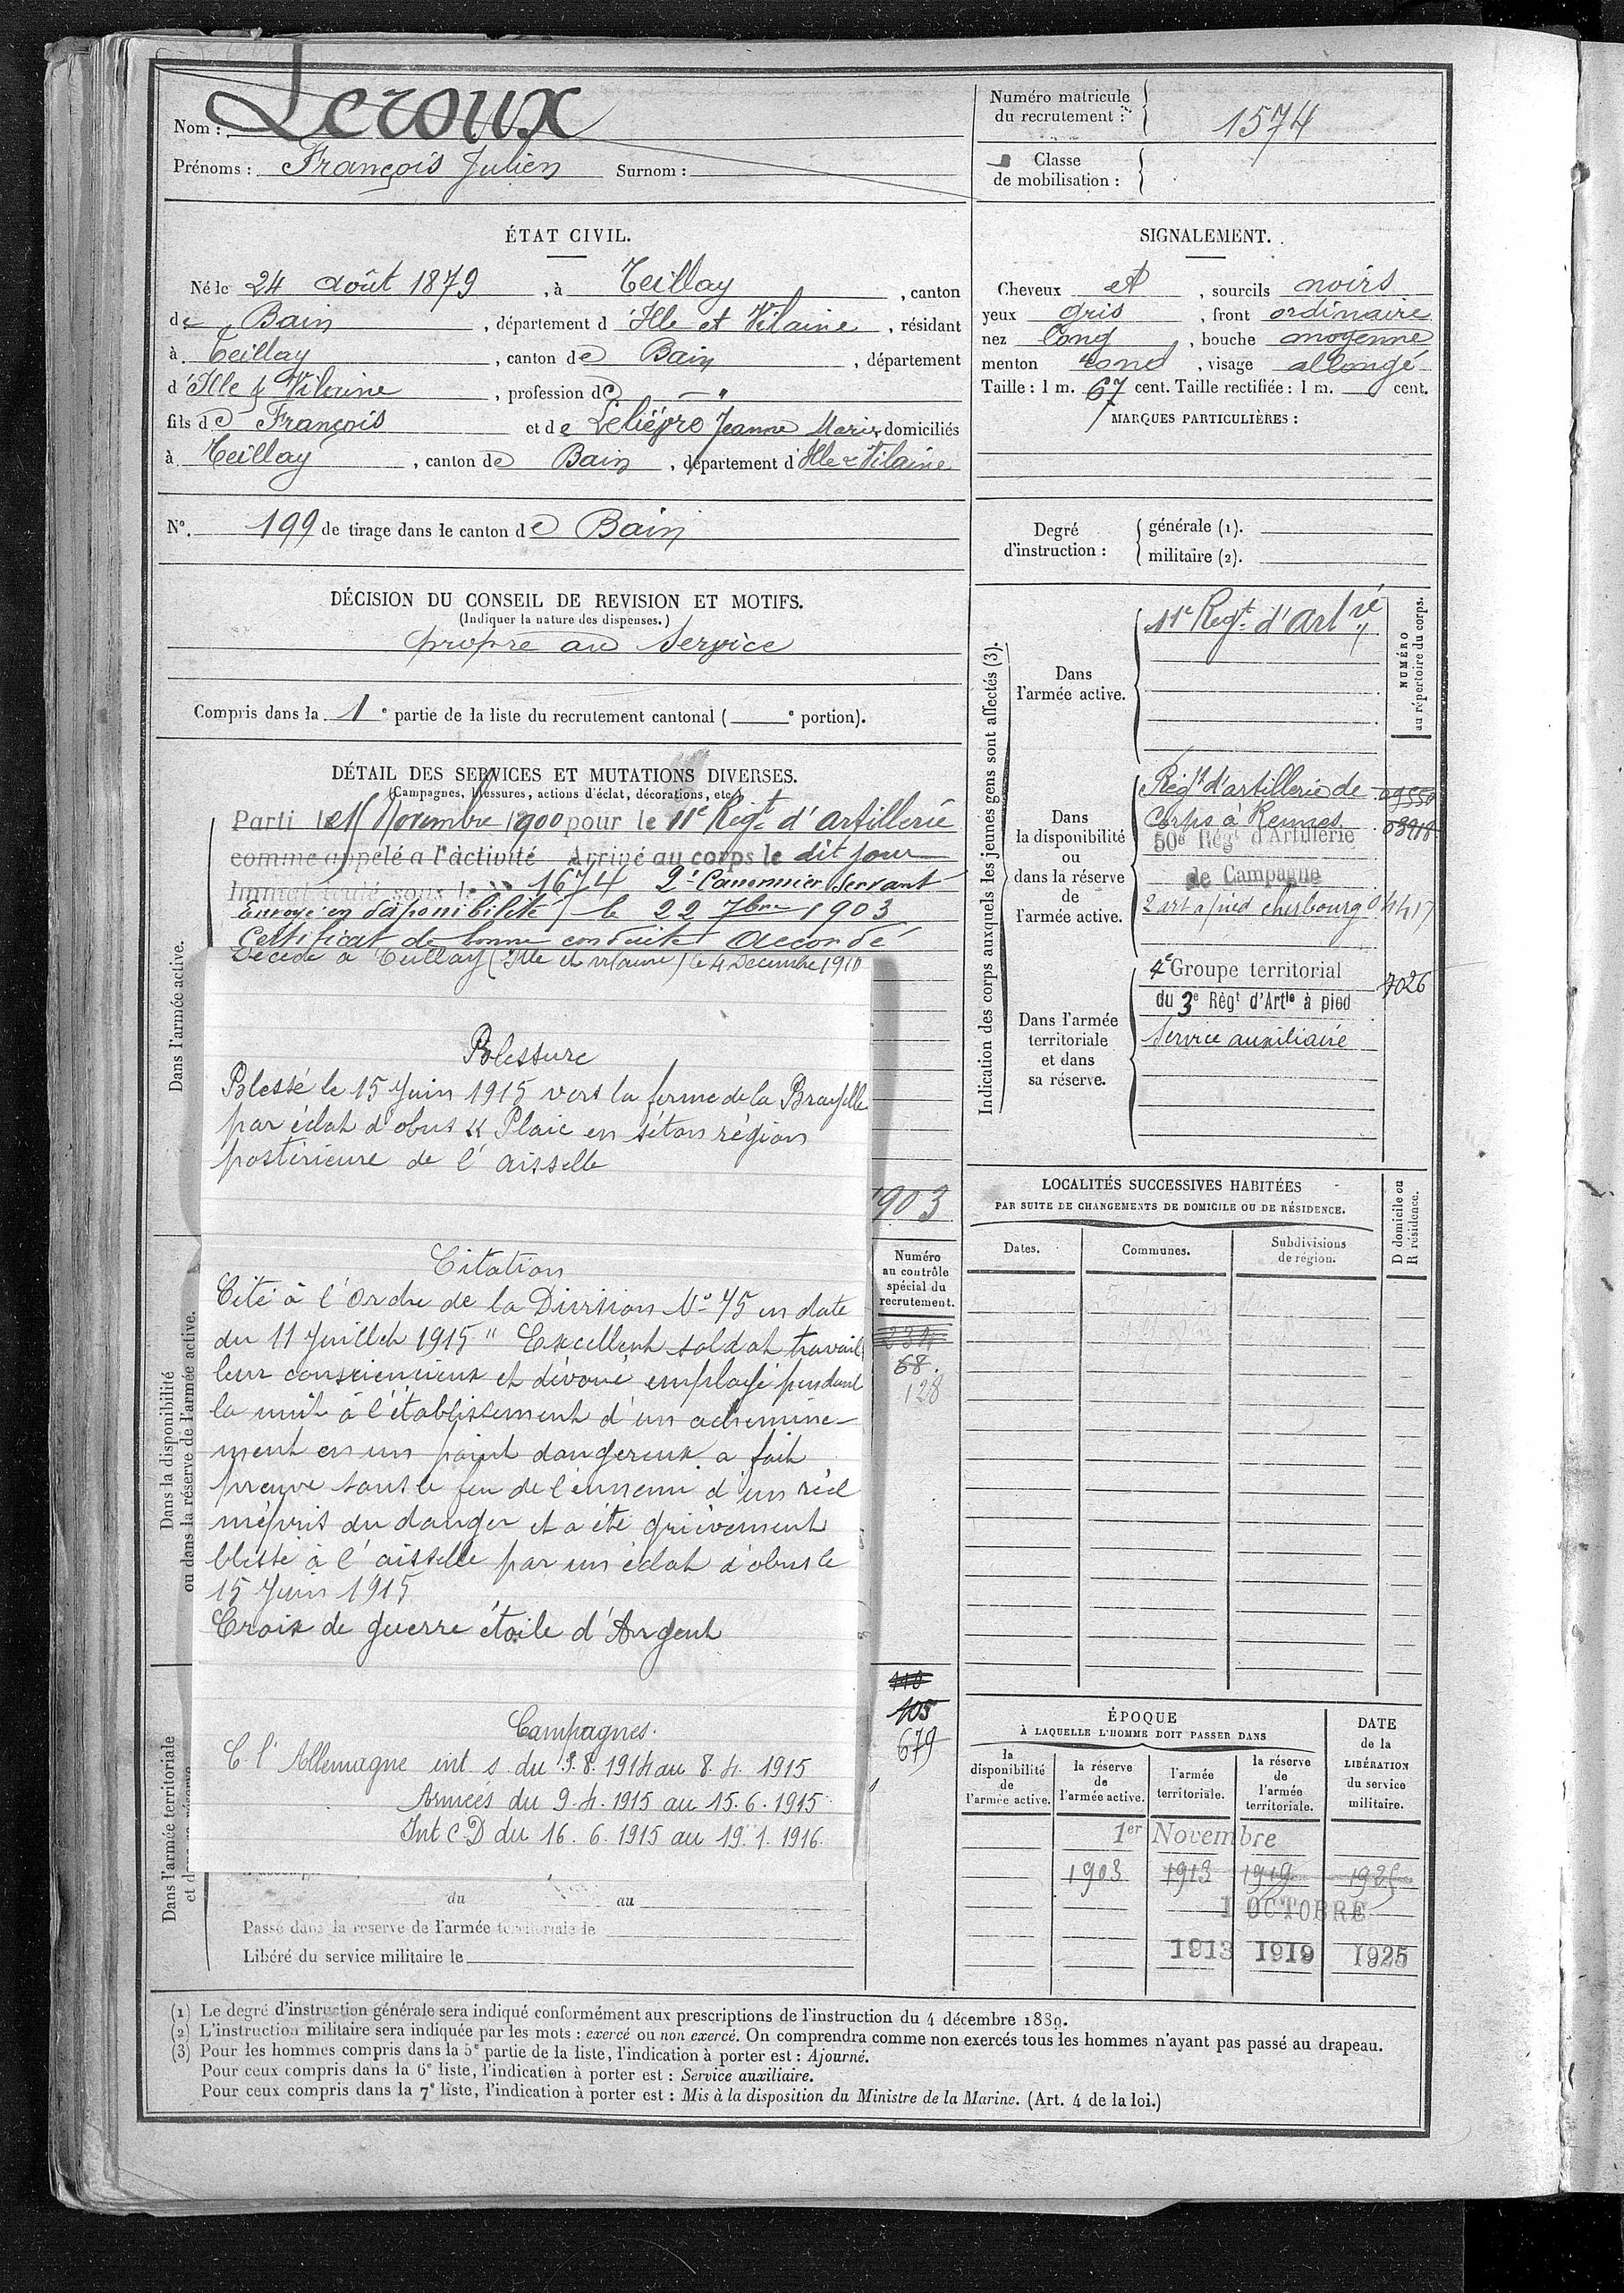 Nom : Leroux
Prénoms : François Julien Surnom :
Numéro matricule
du recrutement : 1574
Classe
de mobilisation :
ÉTAT CIVIL.
Né le 24 août 1879, à Teillay, canton
de Bain, département d Ille et Vilaine, résidant
à Teillay, canton de Bain, département
d'Ille & Vilaine, profession de "
fils de François et de Lelièvre Jeanne Marie, domiciliés
à Teillay, canton de Bain, département d'Ille & Vilaine
N°. 199 de tirage dans le canton de Bain
DÉCISION DU CONSEIL DE REVISION ET MOTIFS.
(Indiquer la nature des dispenses.)
propre au service
Compris dans la 1e partie de la liste du recrutement cantonal ( e portion).
DÉTAIL DES SERVICES ET MUTATIONS DIVERSES.
(Campagnes, blessures, actions d'éclat, décorations, etc.)
Parti le Novembre 1900 pour le 11e Regt d'artillerie
comme appelé à l'activité Arrivé au corps le dit jour
Immatriculé sous le n° 1674 2e Canonnier Servant
Envoyé en disponibilité le 22 7bre 1903
Certificat de bonne conduite Accordé
Décédé à Teillay (Ille et vilaine) le 4 Décembre 1910
Blessure
Blessé le 15 Juin 1915 vers la ferme de la
par éclat d'obus " Plaie en séton région
postérieure de l'aisselle
1903
Citation
Cité à l'Ordre de la Division N° 45 en date
du 11 Juillet 1915 " Excellent soldat travail
leur consciencieux et dévoué employé pendant
la nuit à l'établissement d'un achemine-
ment en un point dangereux a fait
preuve sous le feu de l'ennemi d'un réel
mépris du danger et a été grièvement
blessé à l'aisselle par un éclat d'obus le
15 Juin 1915
Croix de guerre étoile d'Argent
Campagnes.
C l'Allemagne int s du 13.8.1914 au 8.4.1915
Armées du 9.4.1915 au 15.6.1915
Int C D du 16.6.1915 au 19.1.1916.
du au
Passé dans la réserve de l'armée territoriale le
Libéré du service militaire le
Dans l'armée active.
Dans la disponibilité
ou dans la réserve de l'armée active.
Dans l'armée territoriale
et dans sa réserve
Numéro
au contrôle
spécial du
recrutement.
234
68.
128
110
105
679
SIGNALEMENT.
Cheveux et, sourcils noirs
yeux gris, front ordinaire
nez long, bouche moyenne
menton rond, visage allongé
Taille : 1 m. 67 cent. Taille rectifiée : 1 m. cent.
MARQUES PARTICULIÈRES :
Degré
d'instruction :
générale (1).
militaire (2).
Indication des corps auxquels les jeunes gens sont affectés (3).
NUMÉRO
au répertoire du corps.
Dans
l'armée active.
11e Regt d'Artrie
Dans
la disponibilité
ou
dans la réserve
de
l'armée active.
Régt d'artillerie de 09550
Corps à Rennes 03918
50e Régt d'Artillerie
de Campagne
2 art à pied cherbourg 04417
Dans l'armée
territoriale
et dans
sa réserve.
4e Groupe territorial 7026
du 3e Règt d'Artie à pied
Service auxiliaire
LOCALITÉS SUCCESSIVES HABITÉES
PAR SUITE DE CHANGEMENTS DE DOMICILE OU DE RÉSIDENCE.
D domicile ou
R résidence.
Dates. Communes. Subdivisions
de région.
ÉPOQUE
À LAQUELLE L'HOMME DOIT PASSER DANS
DATE
de la
LIBÉRATION
du service
militaire.
la
disponibilité
de
l'armée active.
la réserve
de
l'armée active.
l'armée
territoriale.
la réserve
de
l'armée
territoriale.
1er Novembre
1903 1913 1919 1925
1 OCTOBRE
1913 1919 1925
(1) Le degré d'instruction générale sera indiqué conformément aux prescriptions de l'instruction du 4 décembre 1889.
(2) L'instruction militaire sera indiquée par les mots : exercé ou non exercé. On comprendra comme non exercés tous les hommes n'ayant pas passé au drapeau.
(3) Pour les hommes compris dans la 5e partie de la liste, l'indication à porter est : Ajourné.
Pour ceux compris dans la 6e liste, l'indication à porter est : Service auxiliaire.
Pour ceux compris dans la 7e liste, l'indication à porter est : Mis à la disposition du Ministre de la Marine. (Art. 4 de la loi.)